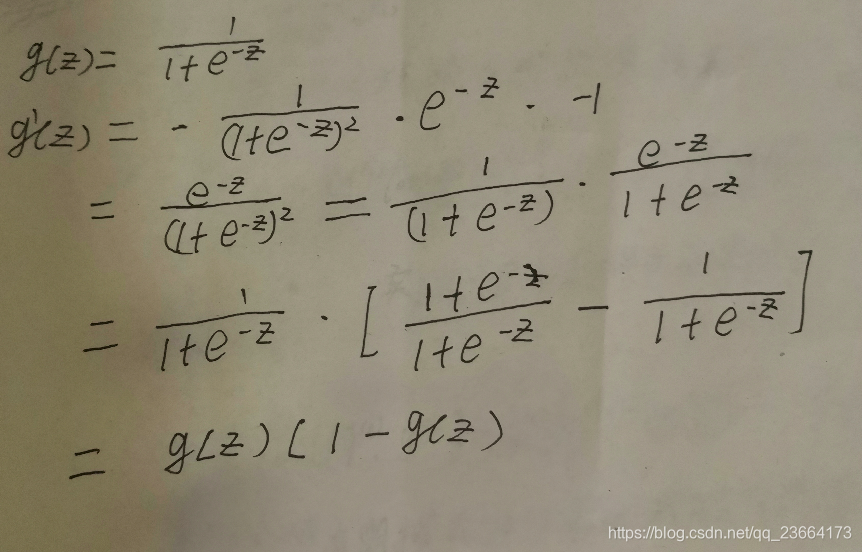 g(z) = 1/(1+e^-z)
g'(z) = - 1/(1+e^-z)² · e^-z · -1
= e^-z/(1+e^-z)² = 1/(1+e^-z) · e^-z/(1+e^-z)
= 1/(1+e^-z) · [ (1+e^-z)/(1+e^-z) - 1/(1+e^-z) ]
= g(z) ( 1 - g(z) )
https://blog.csdn.net/qq_23664173